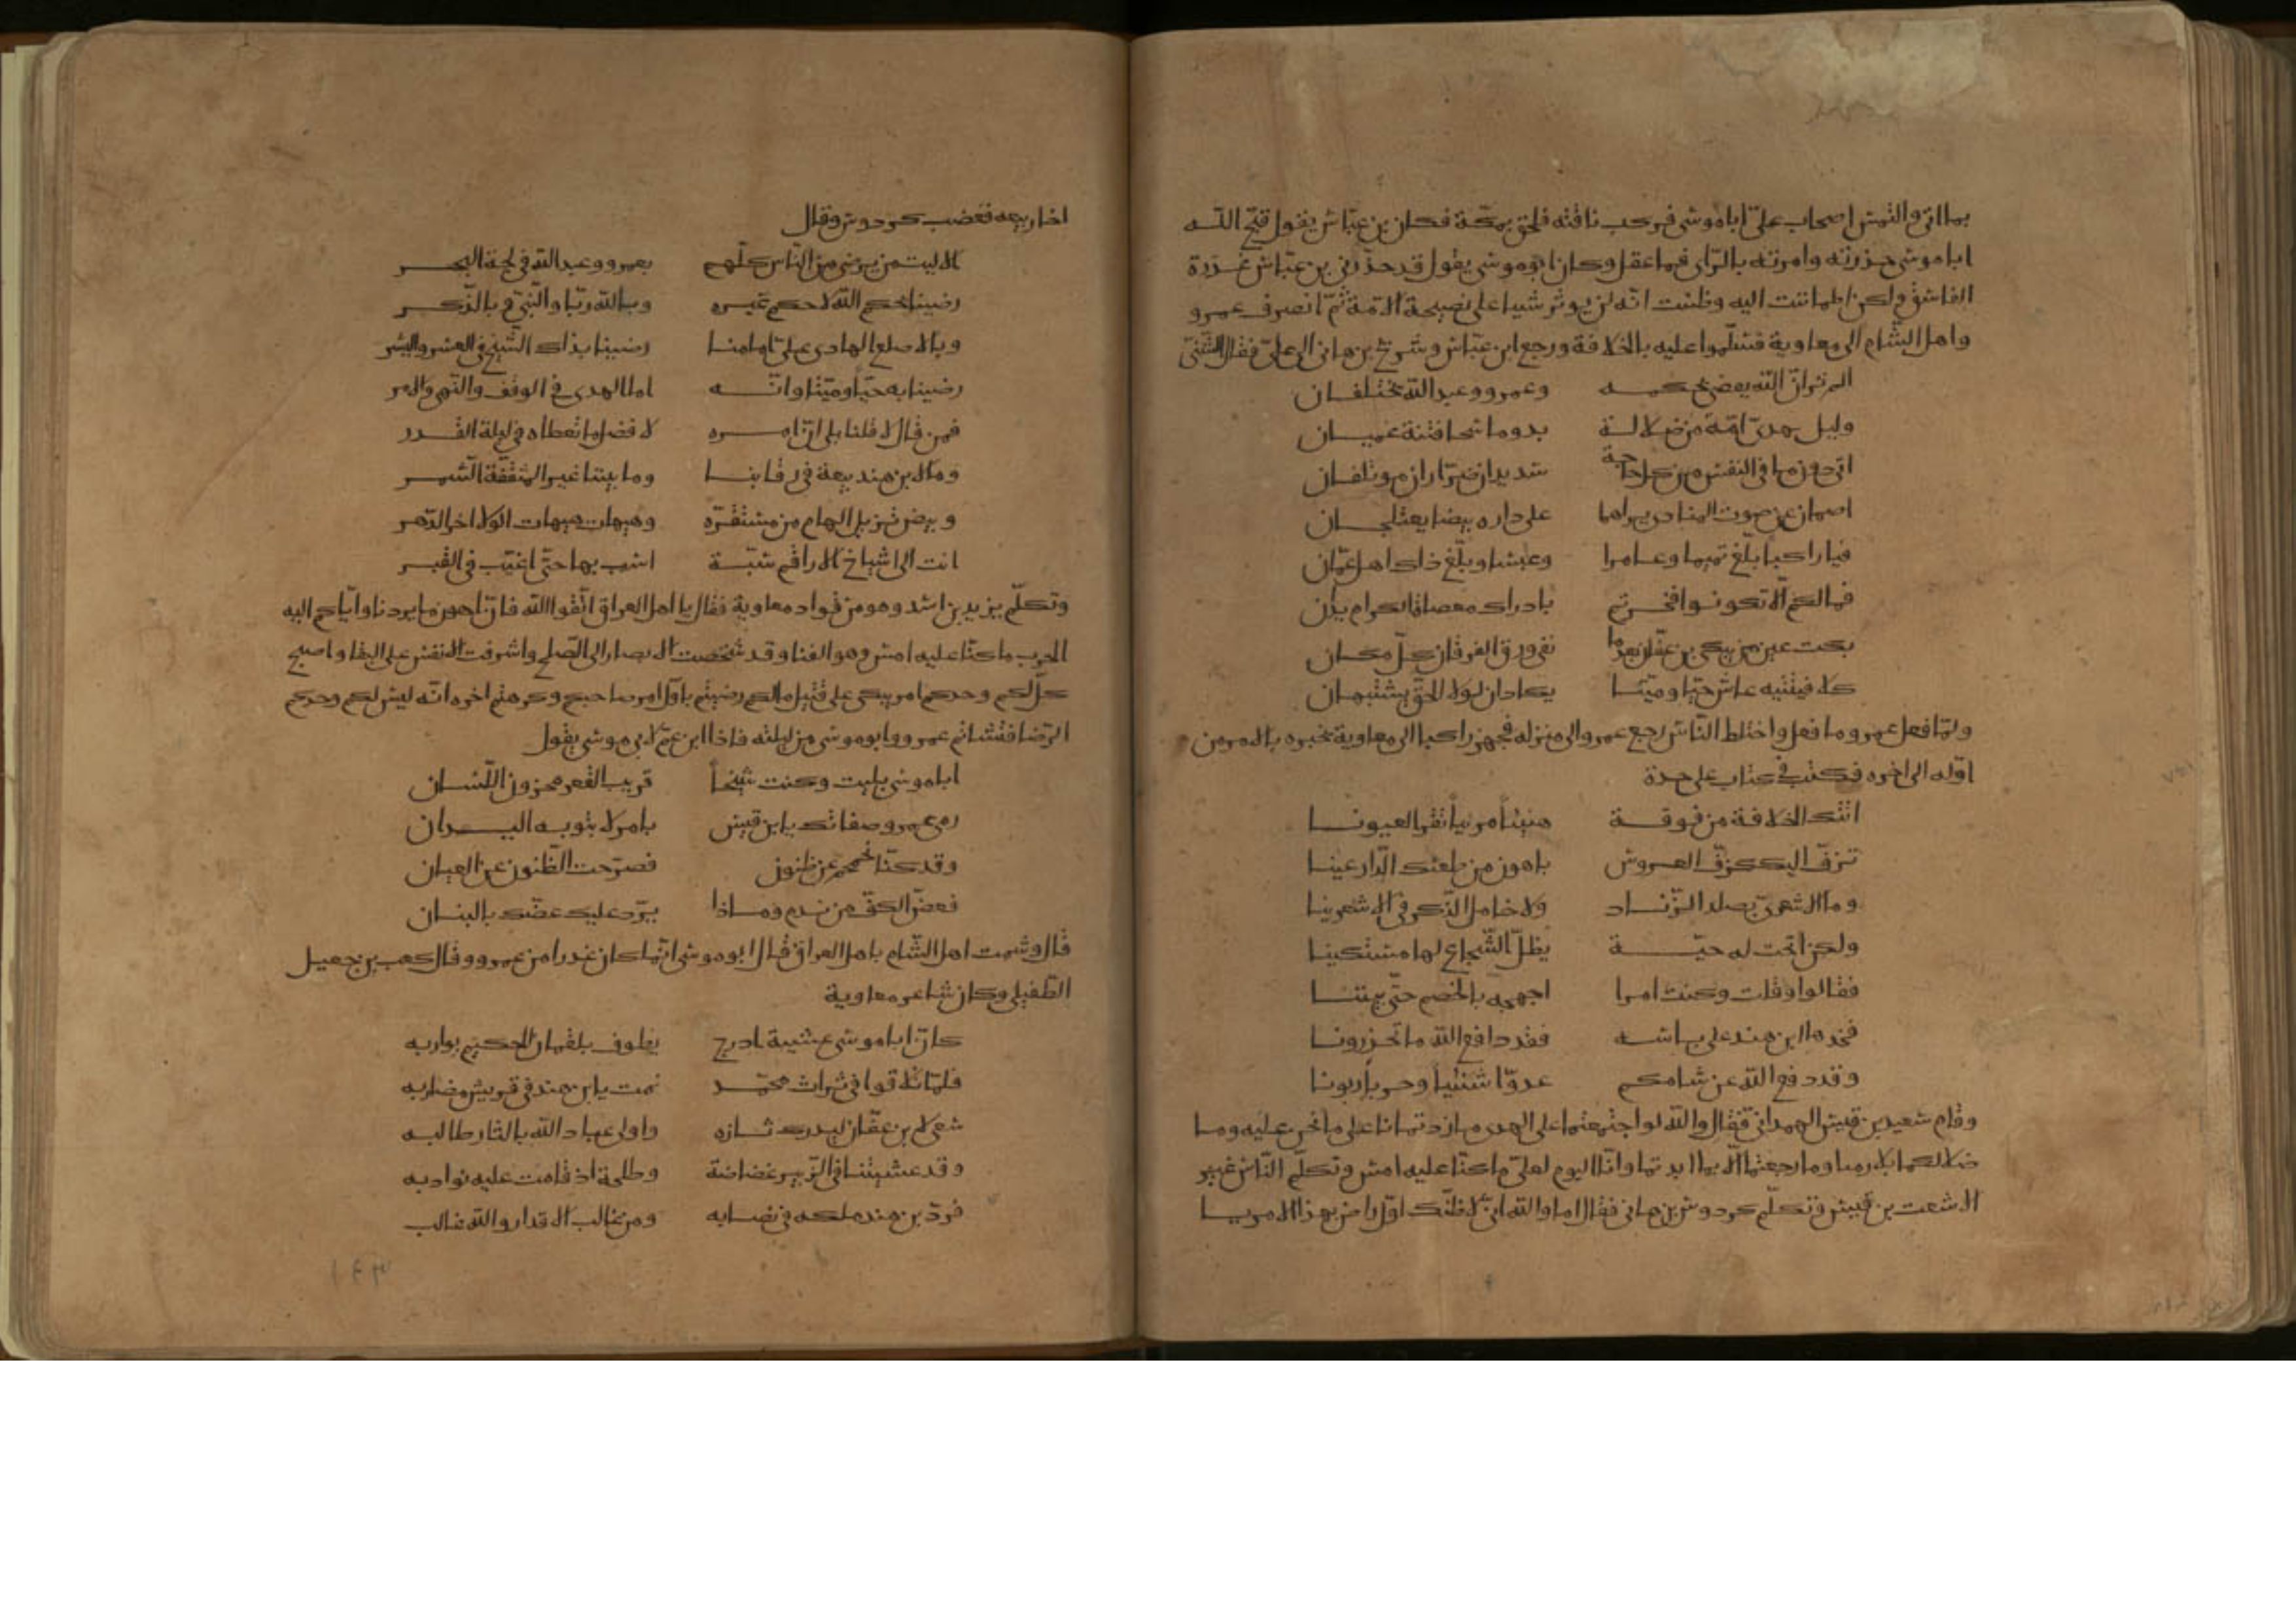 بما اتى والتمس اصحاب على ابا موسى فركب ناقته فلحق بمكة فكان بن عباس يقول قبح الله
ابا موسى حذرته وامرته بالراى فما عقل وكان ابو موسى يقول قد حذرنى بن عباس غدرة
الفاسق ولكن اطماننت اليه وظننت انه لن يوثر شيا على نصيحة الامة ثم انصرف عمرو
واهل الشام الى معاوية فسلموا عليه بالخلافة ورجع ابن عباس وشريح بن هانى الى على فقال الشنى
الم تر ان الله يقضى بحكمه وعمرو وعبد الله يختلفان
وليسا بهدى امة من ضلالة بدوما سحا فتنة عميان
اثى حون ما فى النفس من كل حاجة شديدان ضراران موتلفان
اصمان عن صوت المنادى براهما على داره بيضا يعتلجان
فيا راكبا بلغ تميما وعامرا وعبسا وبلغ ذاك اهل عمان
فما لكم الا تكونوا فخرتم بادراك
بكت عين من يبكى بن عفان بعدما نفى ورق الفرقان كل مكان
كلا فيتنيه عاش حيا وميتا يكادان لولا الحق يشتبهان
ولما فعل عمرو ما فعل واختلط الناس رجع عمرو الى منزله فجهز راكبا الى معاوية يخبره بالامر من
اوله الى اخره فكتب فى كتاب على حدة
اتتك الخلافة من فوقة هنيئا مريا تقر العيونا
تزف اليك كزف العروس باهون من طعنك الدارعينا
وما الاشعرى بصلد الزناد ولا خامل الذكر فى الاشعرينا
ولكن اتحت له حية يظل الشجاع لها مستكينا
فقالوا وقلت وكنت امرا اجهجه بالخصم حتى
فخذها ابن هند على باسه فقد دافع الله ما تحذرونا
وقد دفع الله عن شامكم عدوا شنئيا وحربا زبونا
وقام سعيد بن قيس الهمدانى فقال والله لو اجتمعتما على الهدى ما زدتمانا على ما نحن عليه وما
ضلالكما بلازمنا وما رجعتما الا بما ابدتما وانا اليوم لعلى ما كنا عليه امس وتكلم الناس غير
الاشعث بن قيس وتكلم كردوس بن هانى فقال اما والله انى لاظنك اول راض بهذا الامر يا
اخا ربيعه فغضب كردوس وقال
الا ليت من يرضى من الناس كلهم بعمرو وعبد الله فى لجة البحر
رضينا بحكم الله لا حكم غيره وبالله ربا والنبى وبالذكر
وبالاصلع الهادى على امامنا رضينا بذاك الشيخ فى العسر واليسر
رضينا به حيا وميتا وانه امام الهدى فى الوقف والنهى والامر
فمن قال لا قلنا بلى ان امره لافضل ما تعطاه فى ليلة القدر
وما لابن هند بيعة فى رقابنا وما بيننا غير المثقفة السمر
وبيض تزيل الهام من مستقره وهيهات هيهات الولا اخر الدهر
ابت الى اشياخ الاراقم سبة اسب بها حتى اغيب فى القبر
وتكلم يزيد بن اسد وهو من قواد معاوية فقال يا اهل العراق اتقوا الله فان اهون ما يردنا واياكم اليه
الحرب ما كنا عليه امس وهو الفنا وقد شخصت الابصار الى الصلح واشرفت الانفس على البقا واصبح
كل لكم وحدكم امر يبكى على قتيل ما لكم رضيتم باول امر صاحبكم وكرهتم اخره انه ليس لكم وحدكم
الرضا فتشاتم عمرو وابو موسى من ليلته فاذا ابن عم لابى موسى يقول
ابا موسى بليت وكنت شيخا قريب القعر مخزون اللسان
رمى عمرو صفاتك يا ابن قيس بامر لا ينوء به اليدان
وقد كنا نجمجم عن ظنون فصرحت الظنون عن العيان
فعض الكف من ندم وماذا يرد عليك عضك بالبنان
قال وشمت اهل الشام باهل العراق قال ابو موسى انما كان غدرا من عمرو وقال كعب بن جعيل
الطفيلى وكان شاعر معاوية
كان ابا موسى عشية اذرح يطوف بلقمان الحكيم يواربه
فلما تلاقوا فى تراث محمد نمت يا ابن هند فى قريش مضاربه
سعى لابن عفان ليدرك ثاره واولى عباد الله بالثار طالبه
وقد غشيتنا فى الزبير غضاضة وطلحة اذ قامت عليه نوادبه
فرد بن هند ملكه فى نصابه ومن غالب الاقدار والله غالب
١٤٣